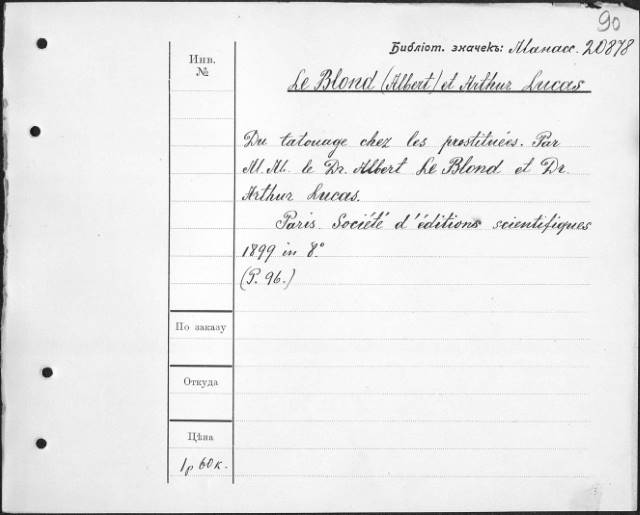 90
Библіот. значекъ: Манасс. 20878
Инв.
№
Le Blond (Albert) et Arthur Lucas
Du tatouage chez les prostituées. Par
M.M. le Dr. Albert Le Blond et Dr.
Arthur Lucas.
Paris. Société d'éditions scientifiques
1899 in 8°
(P. 96.)
По заказу
Откуда
Цѣна
1р 60к.